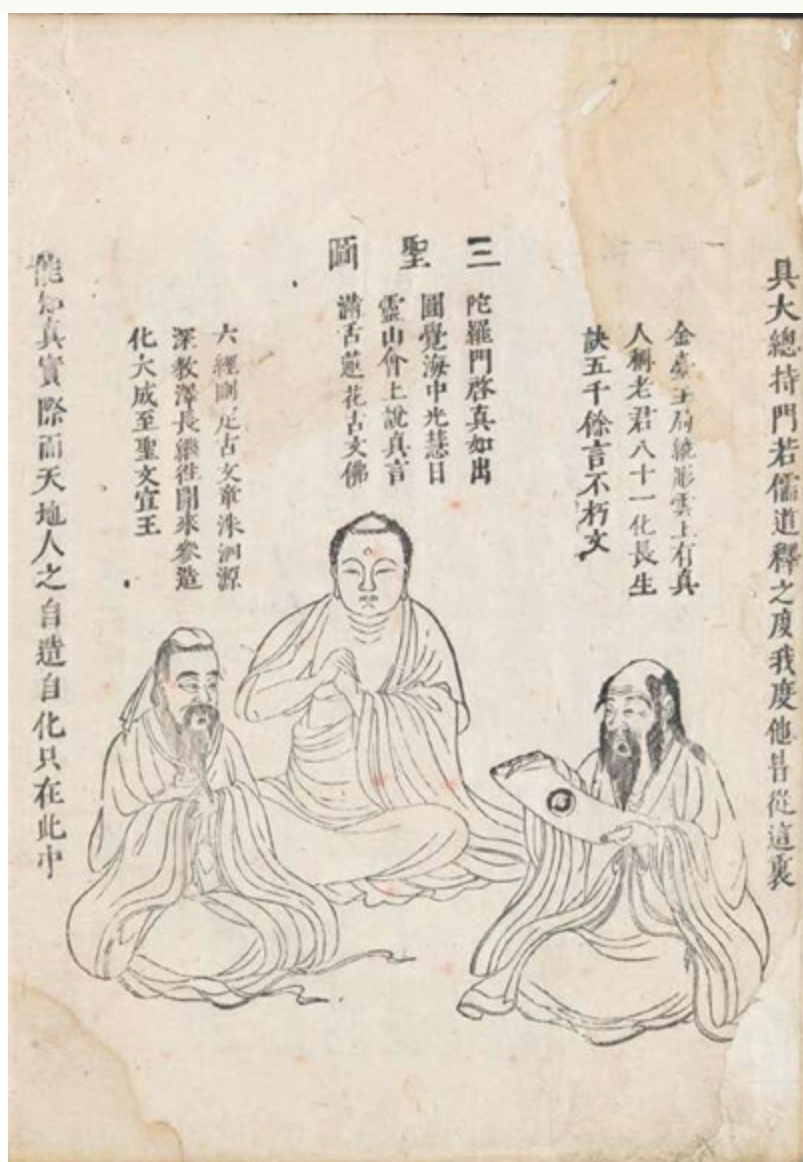 具大總持門若儒道釋之度我度他皆從這裏
金臺玉局繞彤雲上有真
人稱老君八十一化長生
訣五千餘言不朽文
三聖圖
陀羅門啓真如出
圓覺海中光慧日
靈山會上說真言
滿舌蓮花古文佛
六經刪定古文章洙泗源
深教澤長繼徃開來參造
化大成至聖文宣王
能知真實際而天地人之自造自化只在此中